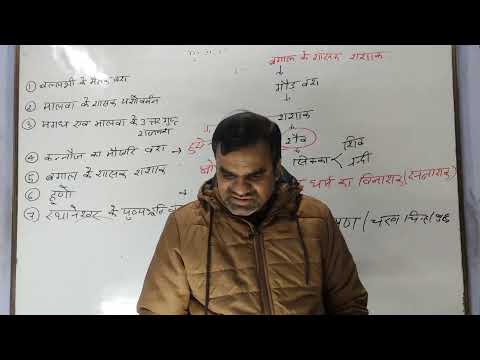 ① वल्लभी के मैत्रक वंश
② मालवा के शासक यशोवर्मन
③ मगध एवं मालवा के उत्तर गुप्त
राजवंश
④ कन्नौज का मौखरि वंश →
⑤ बंगाल के शासक शशांक
⑥ हूणो
⑦ स्थानेश्वर के पुष्यभूति
बंगाल के शासक शशांक
↓
गौड वंश
↓
शशांक
↓
शैव
सिक्का < शिव
नन्दी
धर्म का विनाशक
चरण चिन्ह